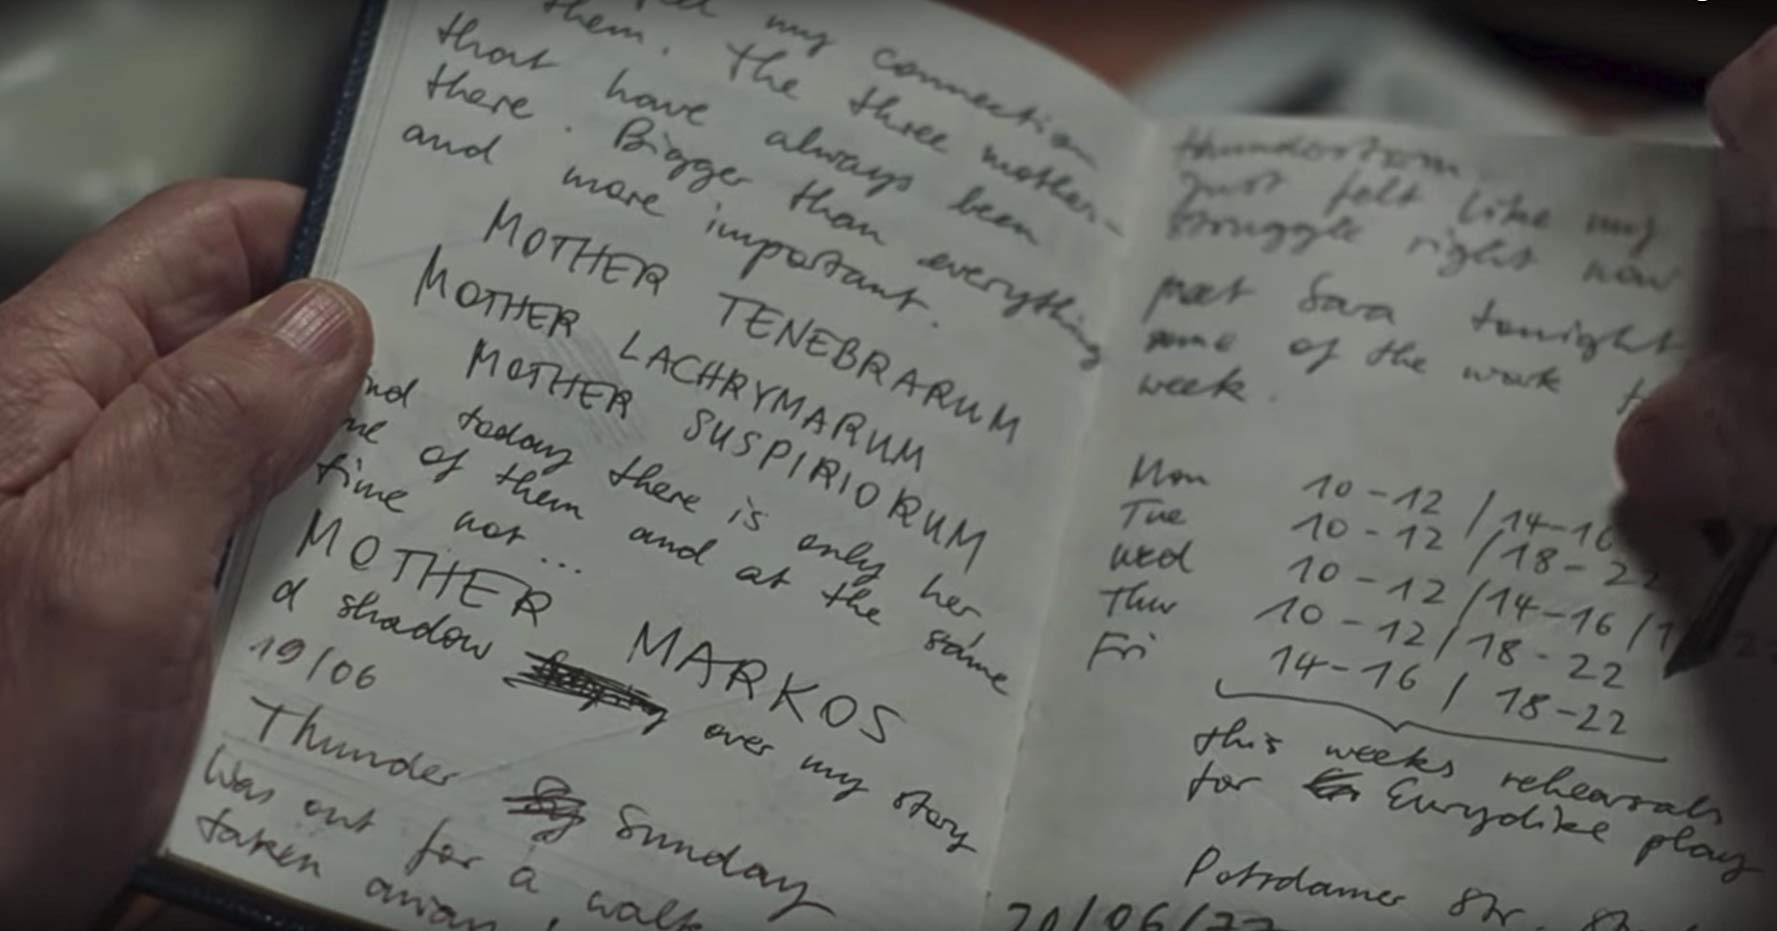 my connection
them. The three mother-
that have always been
there. Bigger than everything
and more important.
MOTHER TENEBRARUM
MOTHER LACHRYMARUM
MOTHER SUSPIRIORUM
and today there is only her
of them and at the same
time not...
MOTHER MARKOS
a shadow over my story
19/06
Thunder Sunday
Was out for a walk
taken
thunderstorm.
Just felt like my
struggle right now
meet Sara tonight
some of the work
week.
Mon 10-12 / 14-16
Tue 10-12 / 18-22
Wed 10-12 / 14-16 /
Thur 10-12 / 18-22
Fri 14-16 / 18-22
this weeks rehearsals
for Eurydike play
Potsdamer Str.
20/06/77